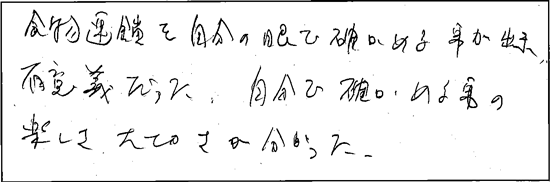 食物連鎖を自分の眼で確かめる事が出来、
有意義だった。自分で確かめる事の
楽しさ、大切さが分かった。